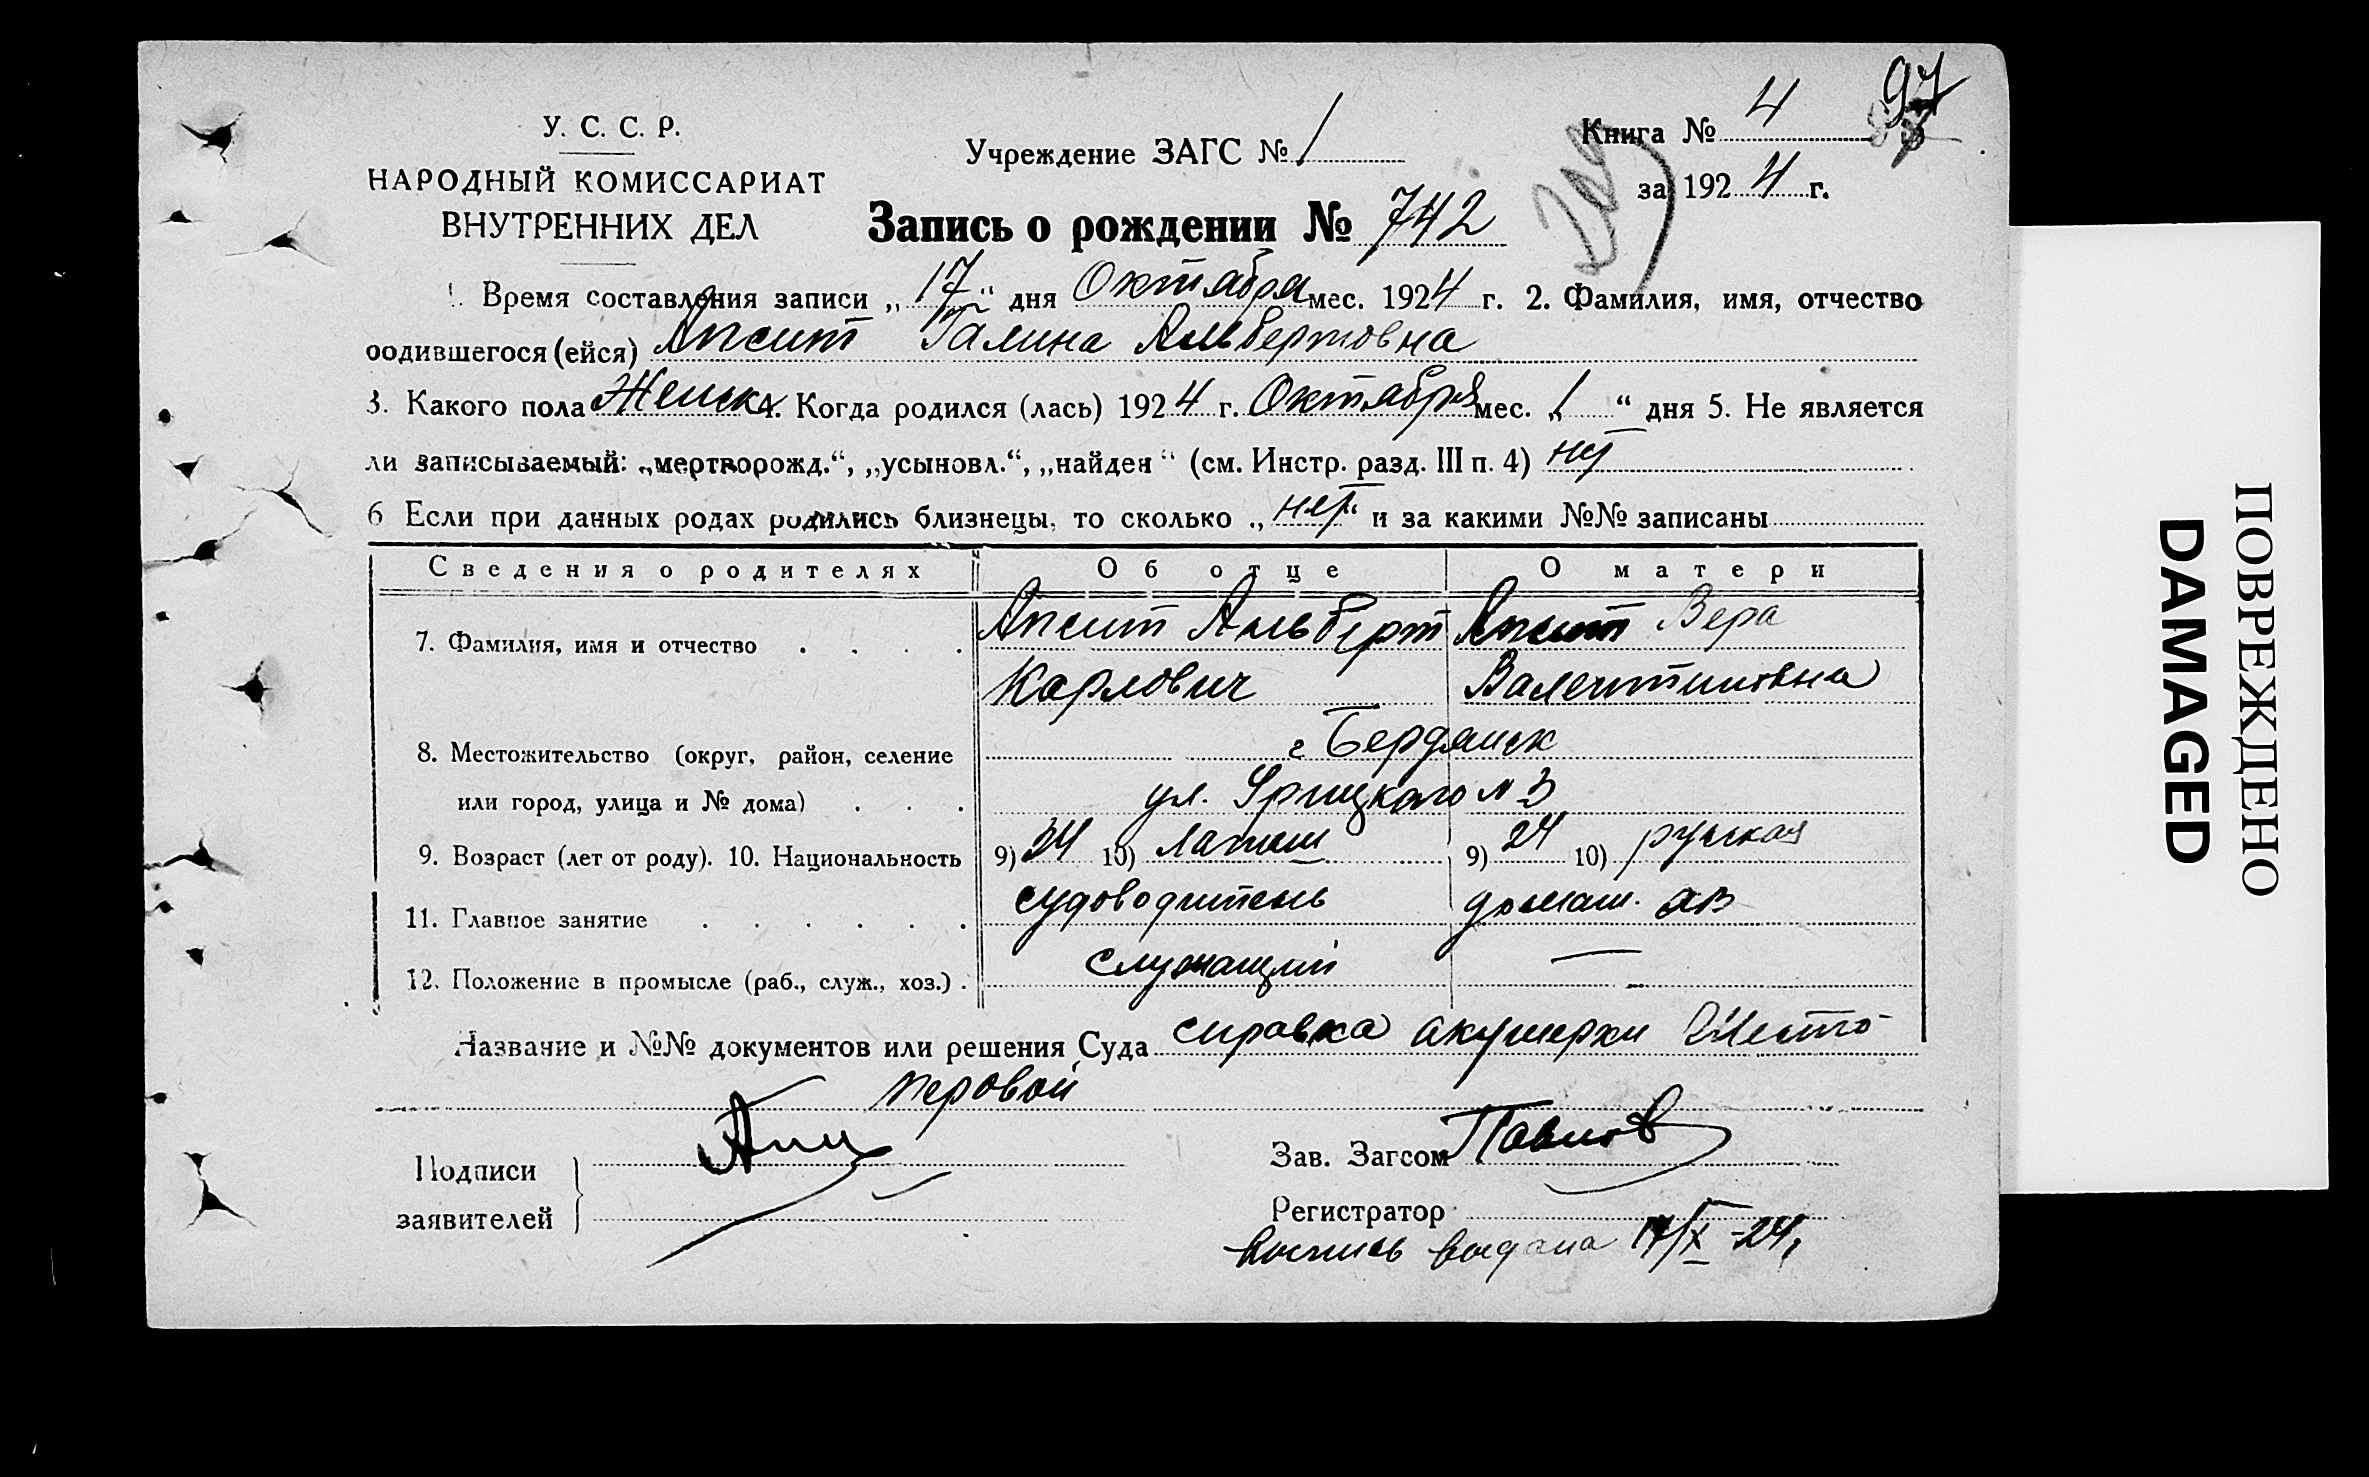 97
У. С. С. Р.
НАРОДНЫЙ КОМИССАРИАТ
ВНУТРЕННИХ ДЕЛ
Учреждение ЗАГС № 1
Книга № 4
за 1924 г.
Запись о рождении № 742
1. Время составления записи „17“ дня Октября мес. 1924 г. 2. Фамилия, имя, отчество
родившегося (ейся) Апсит Галина Альбертовна
3. Какого пола Женск 4. Когда родился (лась) 1924 г. Октября мес. „1“ дня 5. Не является
ли записываемый: „мертворожд.“, „усыновл.“, „найден“ (см. Инстр. разд. III п. 4) нет
6 Если при данных родах родились близнецы, то сколько „нет“ и за какими №№ записаны
Сведения о родителях Об отце О матери
7. Фамилия, имя и отчество . . . . Апсит Альберт Апсит Вера
Карлович Валентиновна
8. Местожительство (округ, район, селение г Бердянск
или город, улица и № дома) . . . ул. Урицкого № 3
9. Возраст (лет от роду). 10. Национальность 9) 34 10) латыш 9) 24 10) русская
11. Главное занятие . . . . . . судоводитель домаш. хоз
12. Положение в промысле (раб., служ., хоз.) . служащий —
Название и №№ документов или решения Суда справка акушерки
перовой
Подписи
заявителей
Зав. Загсом Павлов
Регистратор
выпись выдана 17/X-24,
ПОВРЕЖДЕНО
DAMAGED